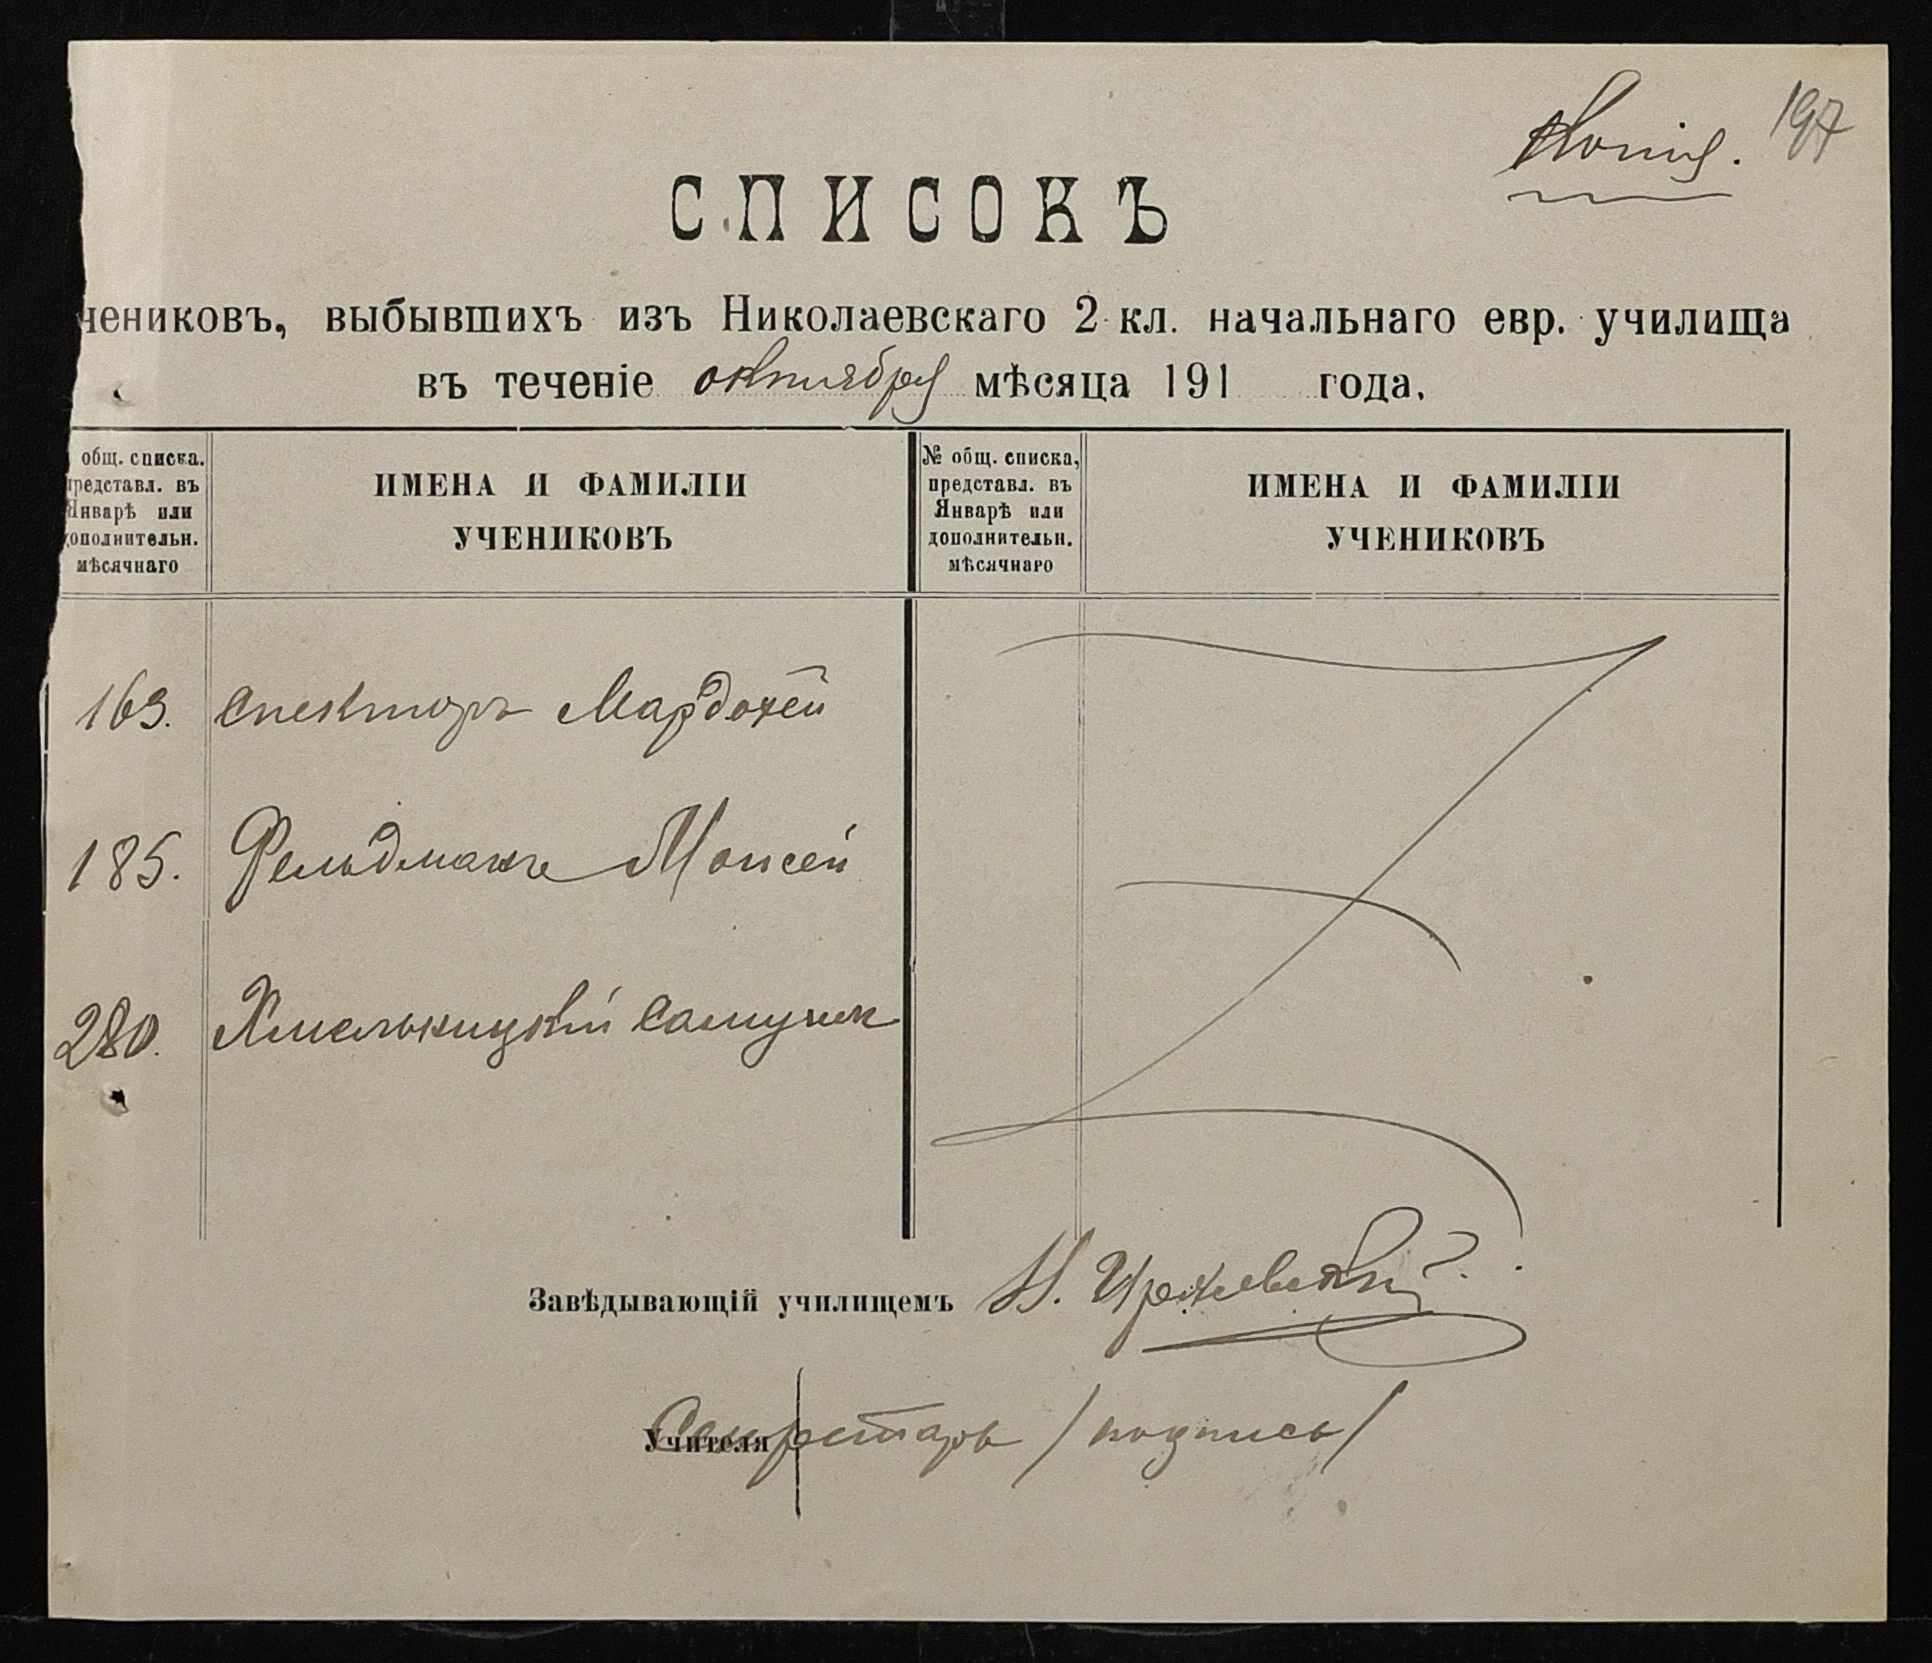 Копія. 197
СПИСОКЪ
чениковъ, выбывшихъ изъ Николаевскаго 2 кл. начальнаго евр. училища
въ теченіе октября мѣсяца 191 года.
общ. списка.
представл. въ
Январѣ или
дополнительн.
мѣсячнаго
ИМЕНА И ФАМИЛІИ
УЧЕНИКОВЪ
№ общ. списка,
представл. въ
Январѣ или
дополнительн.
мѣсячнаго
ИМЕНА И ФАМИЛІИ
УЧЕНИКОВЪ
163. Спекторъ Мардохей
185. Фельдманъ Моисей
280. Хмельницкій Самуил
Завѣдывающій училищемъ Н.
Учителя
Секретарь /подпись/